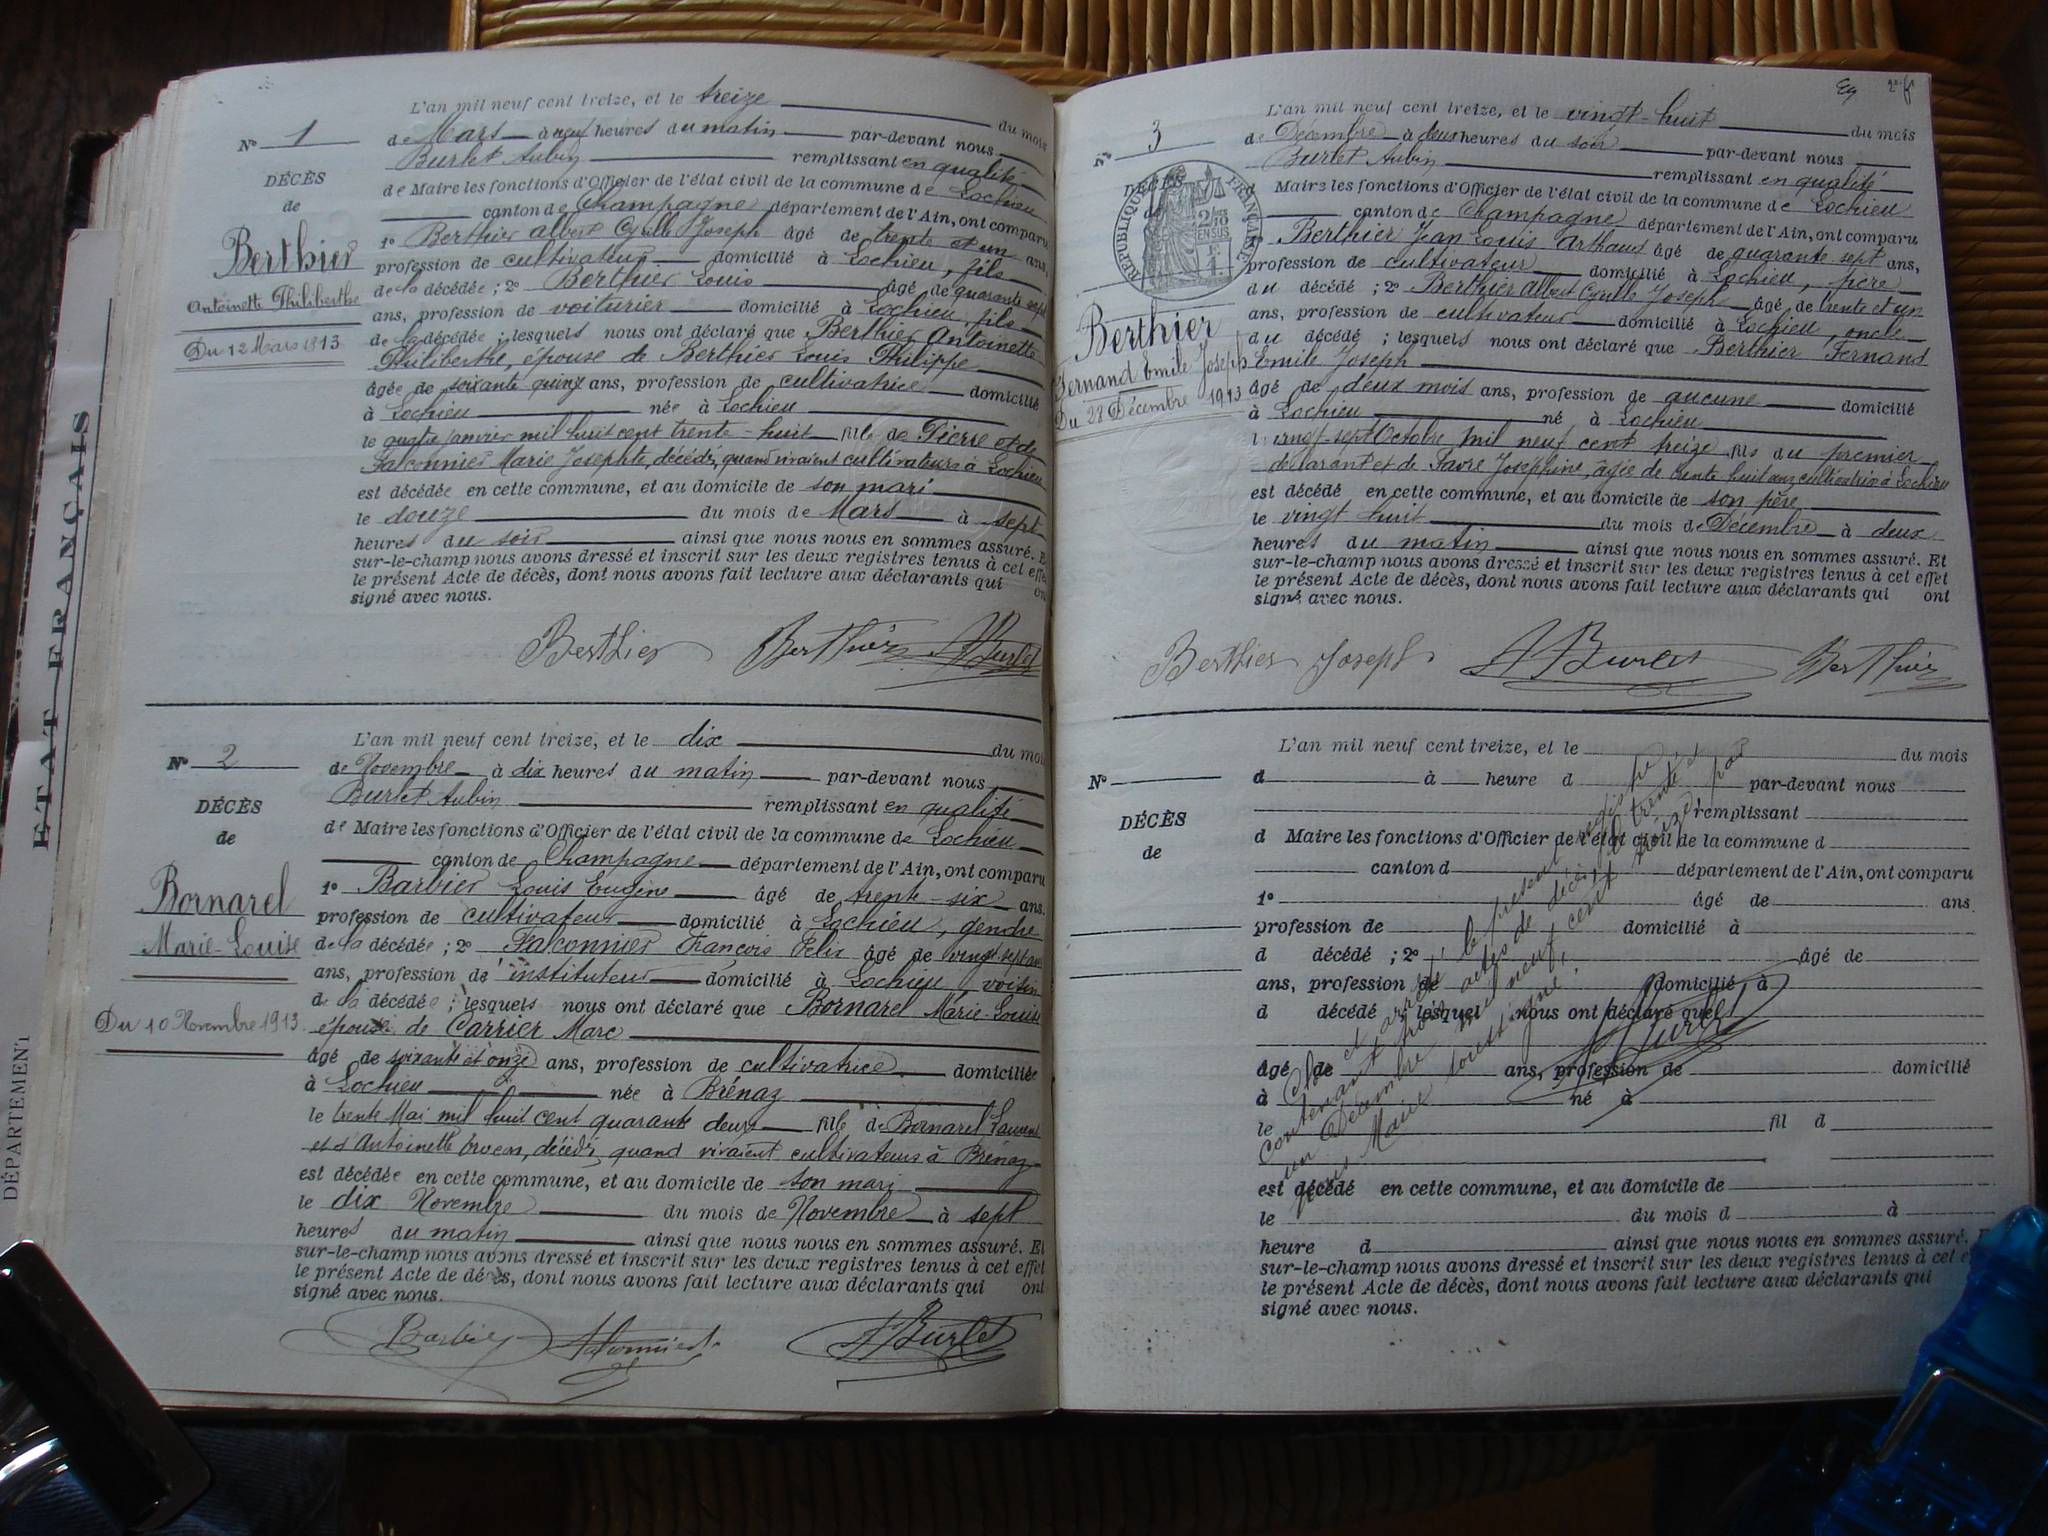 L'an mil neuf cent treize, et le treize du mois
N° 1
de Mars à neuf heures du matin par-devant nous
Burlet Aubin remplissant en qualité
DÉCÈS
de Maire les fonctions d'Officier de l'état civil de la commune de Lochieu
de
canton de Champagne département de l'Ain, ont comparu
Berthier
Antoinette Philiberthe
Du 12 Mars 1913
1° Berthier Albert Cyrille Joseph âgé de trente et un ans,
profession de cultivateur domicilié à Lochieu, fils
de la décédée ; 2° Berthier Louis âgé de quarante sept
ans, profession de voiturier domicilié à Lochieu fils
de la décédée ; lesquels nous ont déclaré que Berthier Antoinette
Philiberthe, épouse de Berthier Louis Philippe
âgée de soixante quinze ans, profession de cultivatrice domicilié
à Lochieu née à Lochieu
le quatre janvier mil huit cent trente-huit fille de Pierre et de
Falconnier Marie Josephte, décédés, quand vivaient cultivateurs à Lochieu
est décédée en cette commune, et au domicile de son mari
le douze du mois de Mars à sept
heures du soir ainsi que nous nous en sommes assuré. Et
sur-le-champ nous avons dressé et inscrit sur les deux registres tenus à cet effet
le présent Acte de décès, dont nous avons fait lecture aux déclarants qui ont
signé avec nous.
Berthier Berthier A Burlet
L'an mil neuf cent treize, et le dix du mois
N° 2
de Novembre à dix heures du matin par-devant nous
Burlet Aubin remplissant en qualité
DÉCÈS
de Maire les fonctions d'Officier de l'état civil de la commune de Lochieu
de
canton de Champagne département de l'Ain, ont comparu
Bornarel
Marie-Louise
Du 10 Novembre 1913
1° Barbier Louis Eugène âgé de trente-six ans.
profession de cultivateur domicilié à Lochieu, gendre
de la décédée ; 2° Falconnier François Félix âgé de vingt sept
ans, profession de instituteur domicilié à Lochieu, voisin
de la décédée ; lesquels nous ont déclaré que Bornarel Marie-Louise
épouse de Carrier Marc
âgé de soixante et onze ans, profession de cultivatrice domiciliée
à Lochieu née à Brénaz
le trente Mai mil huit cent quarante deux fille de Bornarel Laurent
et d'Antoinette décédés, quand vivaient cultivateurs à Brénaz
est décédée en cette commune, et au domicile de son mari
le dix Novembre du mois de Novembre à sept
heures du matin ainsi que nous nous en sommes assuré. Et
sur-le-champ nous avons dressé et inscrit sur les deux registres tenus à cet effet
le présent Acte de décès, dont nous avons fait lecture aux déclarants qui ont
signé avec nous.
Barbier Falconnier A Burlet
ETAT FRANÇAIS
DÉPARTEMENT
L'an mil neuf cent treize, et le vingt-huit du mois
N° 3
de Décembre à deux heures du soir par-devant nous
Burlet Aubin remplissant en qualité
DÉCÈS
Maire les fonctions d'Officier de l'état civil de la commune de Lochieu
RÉPUBLIQUE FRANÇAISE
2/10 EN SUS
canton de Champagne département de l'Ain, ont comparu
Berthier
Fernand Emile Joseph
Du 28 Décembre 1913
Berthier Jean Louis Arthaud âgé de quarante sept ans,
profession de cultivateur domicilié à Lochieu, père
du décédé ; 2° Berthier Albert Cyrille Joseph âgé de trente et un
ans, profession de cultivateur domicilié à Lochieu, oncle
du décédé ; lesquels nous ont déclaré que Berthier Fernand
Emile Joseph
âgé de deux mois ans, profession de aucune domicilié
à Lochieu né à Lochieu
le vingt-sept Octobre mil neuf cent treize fils du premier
déclarant et de Favre Joséphine, âgée de trente huit ans cultivatrice à Lochieu
est décédé en cette commune, et au domicile de son père
le vingt huit du mois de Décembre à deux
heures du matin ainsi que nous nous en sommes assuré. Et
sur-le-champ nous avons dressé et inscrit sur les deux registres tenus à cet effet
le présent Acte de décès, dont nous avons fait lecture aux déclarants qui ont
signé avec nous.
Berthier Joseph A Burlet Berthier
L'an mil neuf cent treize, et le du mois
N°
d à heure d par-devant nous
remplissant
DÉCÈS
d Maire les fonctions d'Officier de l'état civil de la commune d
de
canton d département de l'Ain, ont comparu
1° âgé de ans
profession de domicilié à
d décédé ; 2° âgé de
ans, profession de domicilié à
d décédé ; lesquel nous ont déclaré que
âgé de ans, profession de domicilié
à né à
le fil d
est décédé en cette commune, et au domicile de
le du mois d à
heure d ainsi que nous nous en sommes assuré. E
sur-le-champ nous avons dressé et inscrit sur les deux registres tenus à cet e
le présent Acte de décès, dont nous avons fait lecture aux déclarants qui
signé avec nous.
Clos et arrêté le présent registre
contenant trois actes de décès, le trente et
un Décembre mil neuf cent treize par
nous Maire soussigné.
A Burlet